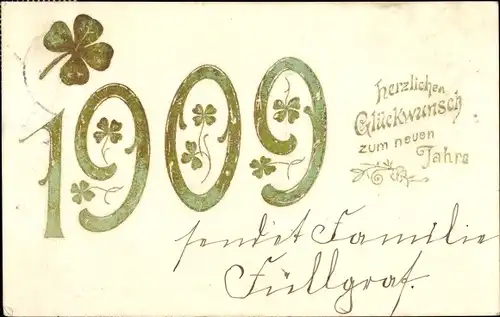 1909
herzlichen
Glückwunsch
zum neuen
Jahre
sendet Familie
Füllgraf.